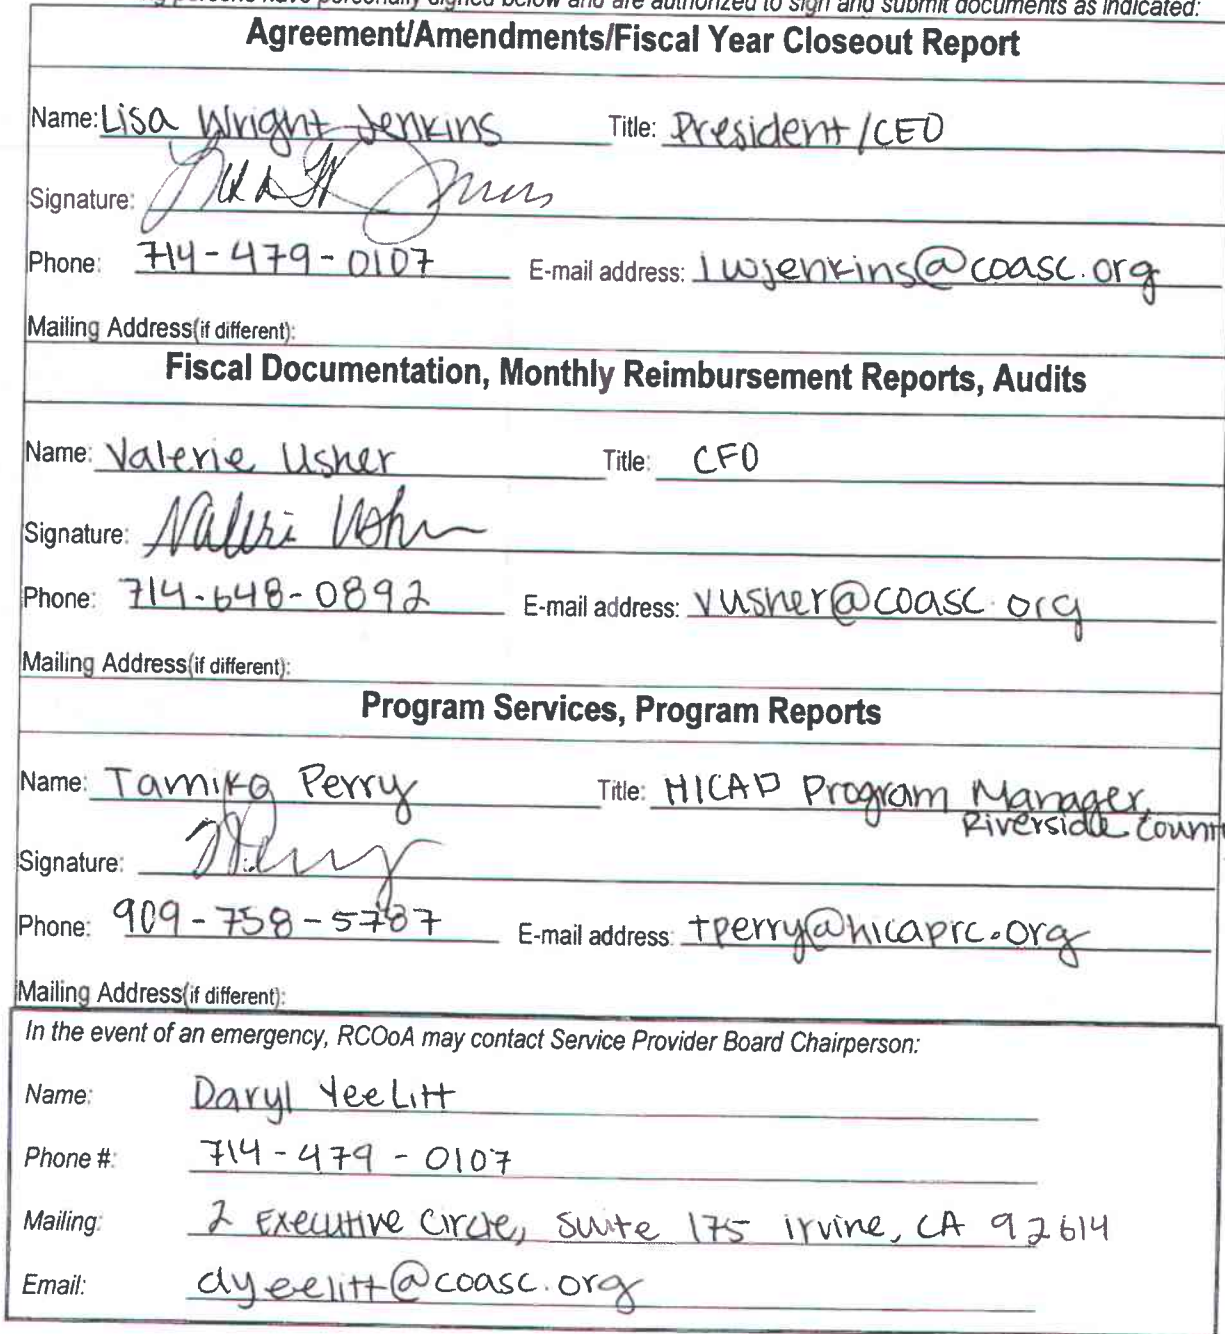 persons have personally signed below and are authorized to sign and submit documents as indicated:
Agreement/Amendments/Fiscal Year Closeout Report
Name: Lisa Wright Jenkins Title: President/CEO
Signature:
Phone: 714-479-0107 E-mail address: lwjenkins@coasc.org
Mailing Address(if different):
Fiscal Documentation, Monthly Reimbursement Reports, Audits
Name: Valerie Usher Title: CFO
Signature: Valeri Ush
Phone: 714-648-0892 E-mail address: vusher@coasc.org
Mailing Address(if different):
Program Services, Program Reports
Name: Tamika Perry Title: HICAP Program Manager,
Riverside Count
Signature: TPerry
Phone: 909-758-5787 E-mail address: tperry@hicaprc.org
Mailing Address(if different):
In the event of an emergency, RCOoA may contact Service Provider Board Chairperson:
Name: Daryl YeeLitt
Phone #: 714-479-0107
Mailing: 2 Executive Circle, Suite 175 irvine, CA 92614
Email: dyeelitt@coasc.org